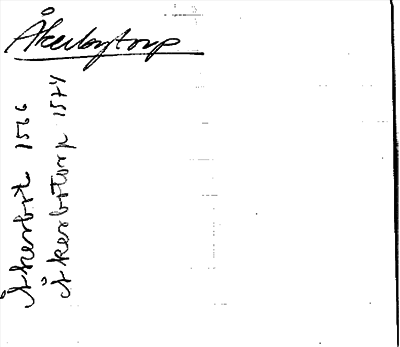 Åkerbytorp
Åkerbÿt 1566
Åkerbÿtorp 1574